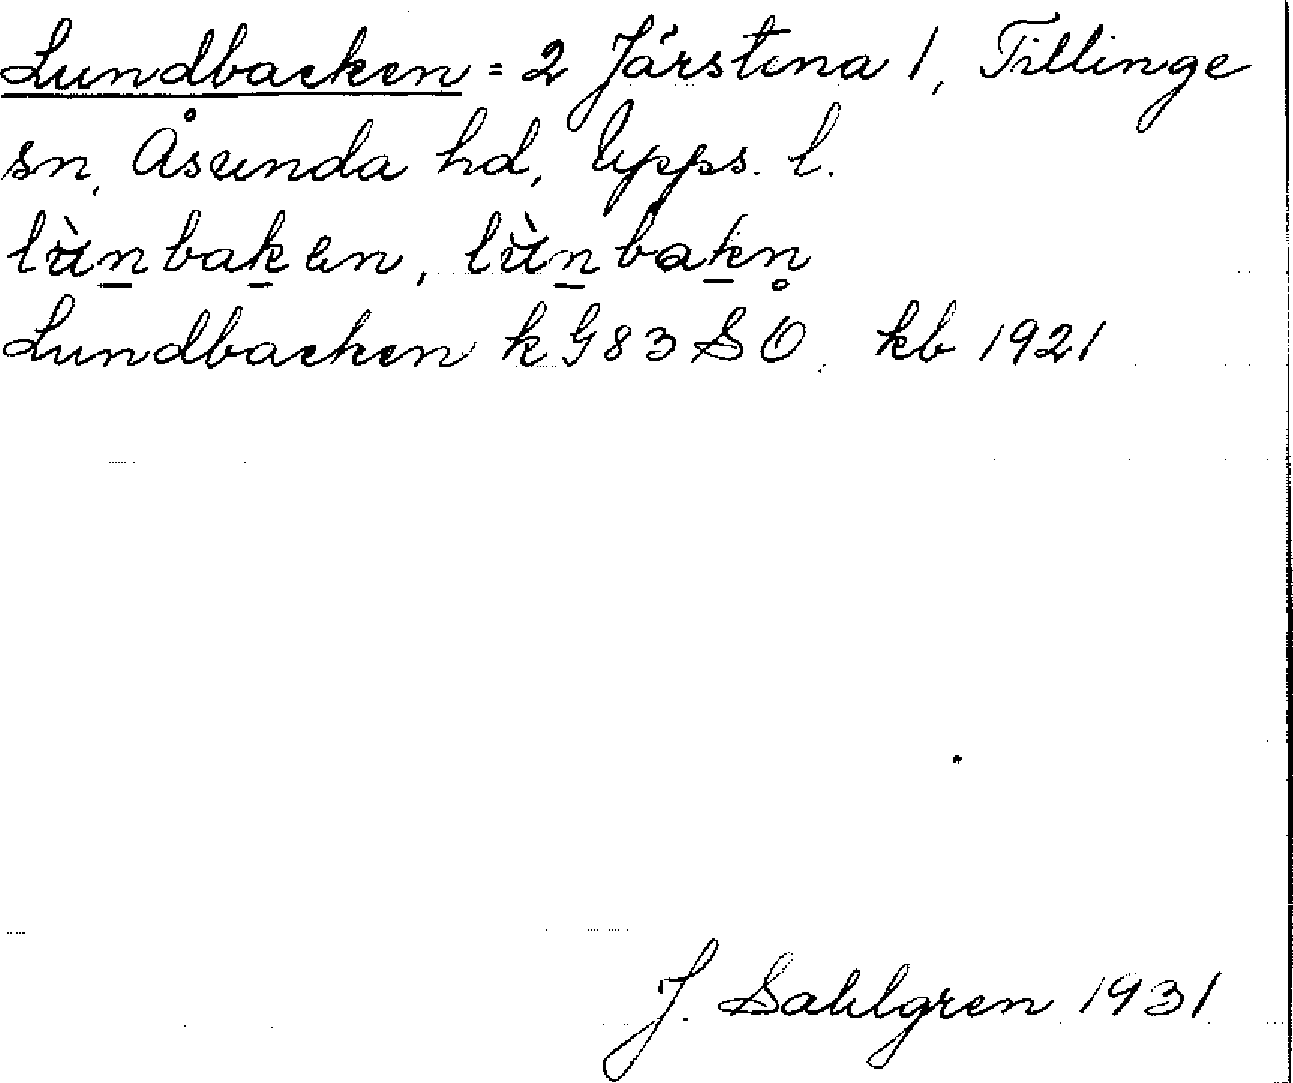 Lundbacken = 2 Järstena 1, Tillinge
sn, Åsunda hd, Upps. l.
lu̇̀n̲bak̲en, lu̇̀n̲bak̲n̥
Lundbacken k G 83 SO. kb 1921
J. Sahlgren 1931